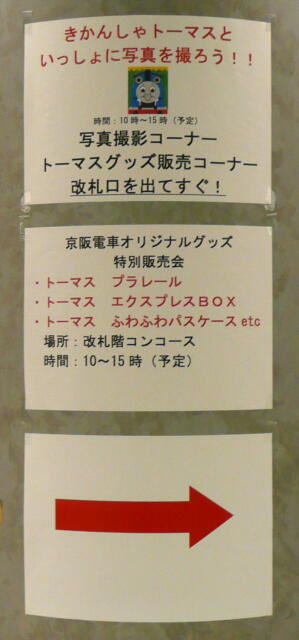 きかんしゃトーマスと
いっしょに写真を撮ろう！！
時間：10時～15時（予定）
写真撮影コーナー
トーマスグッズ販売コーナー
改札口を出てすぐ！
京阪電車オリジナルグッズ
特別販売会
・トーマス　プラレール
・トーマス　エクスプレスＢＯＸ
・トーマス　ふわふわパスケースetc
場所：改札階コンコース
時間：10～15時（予定）